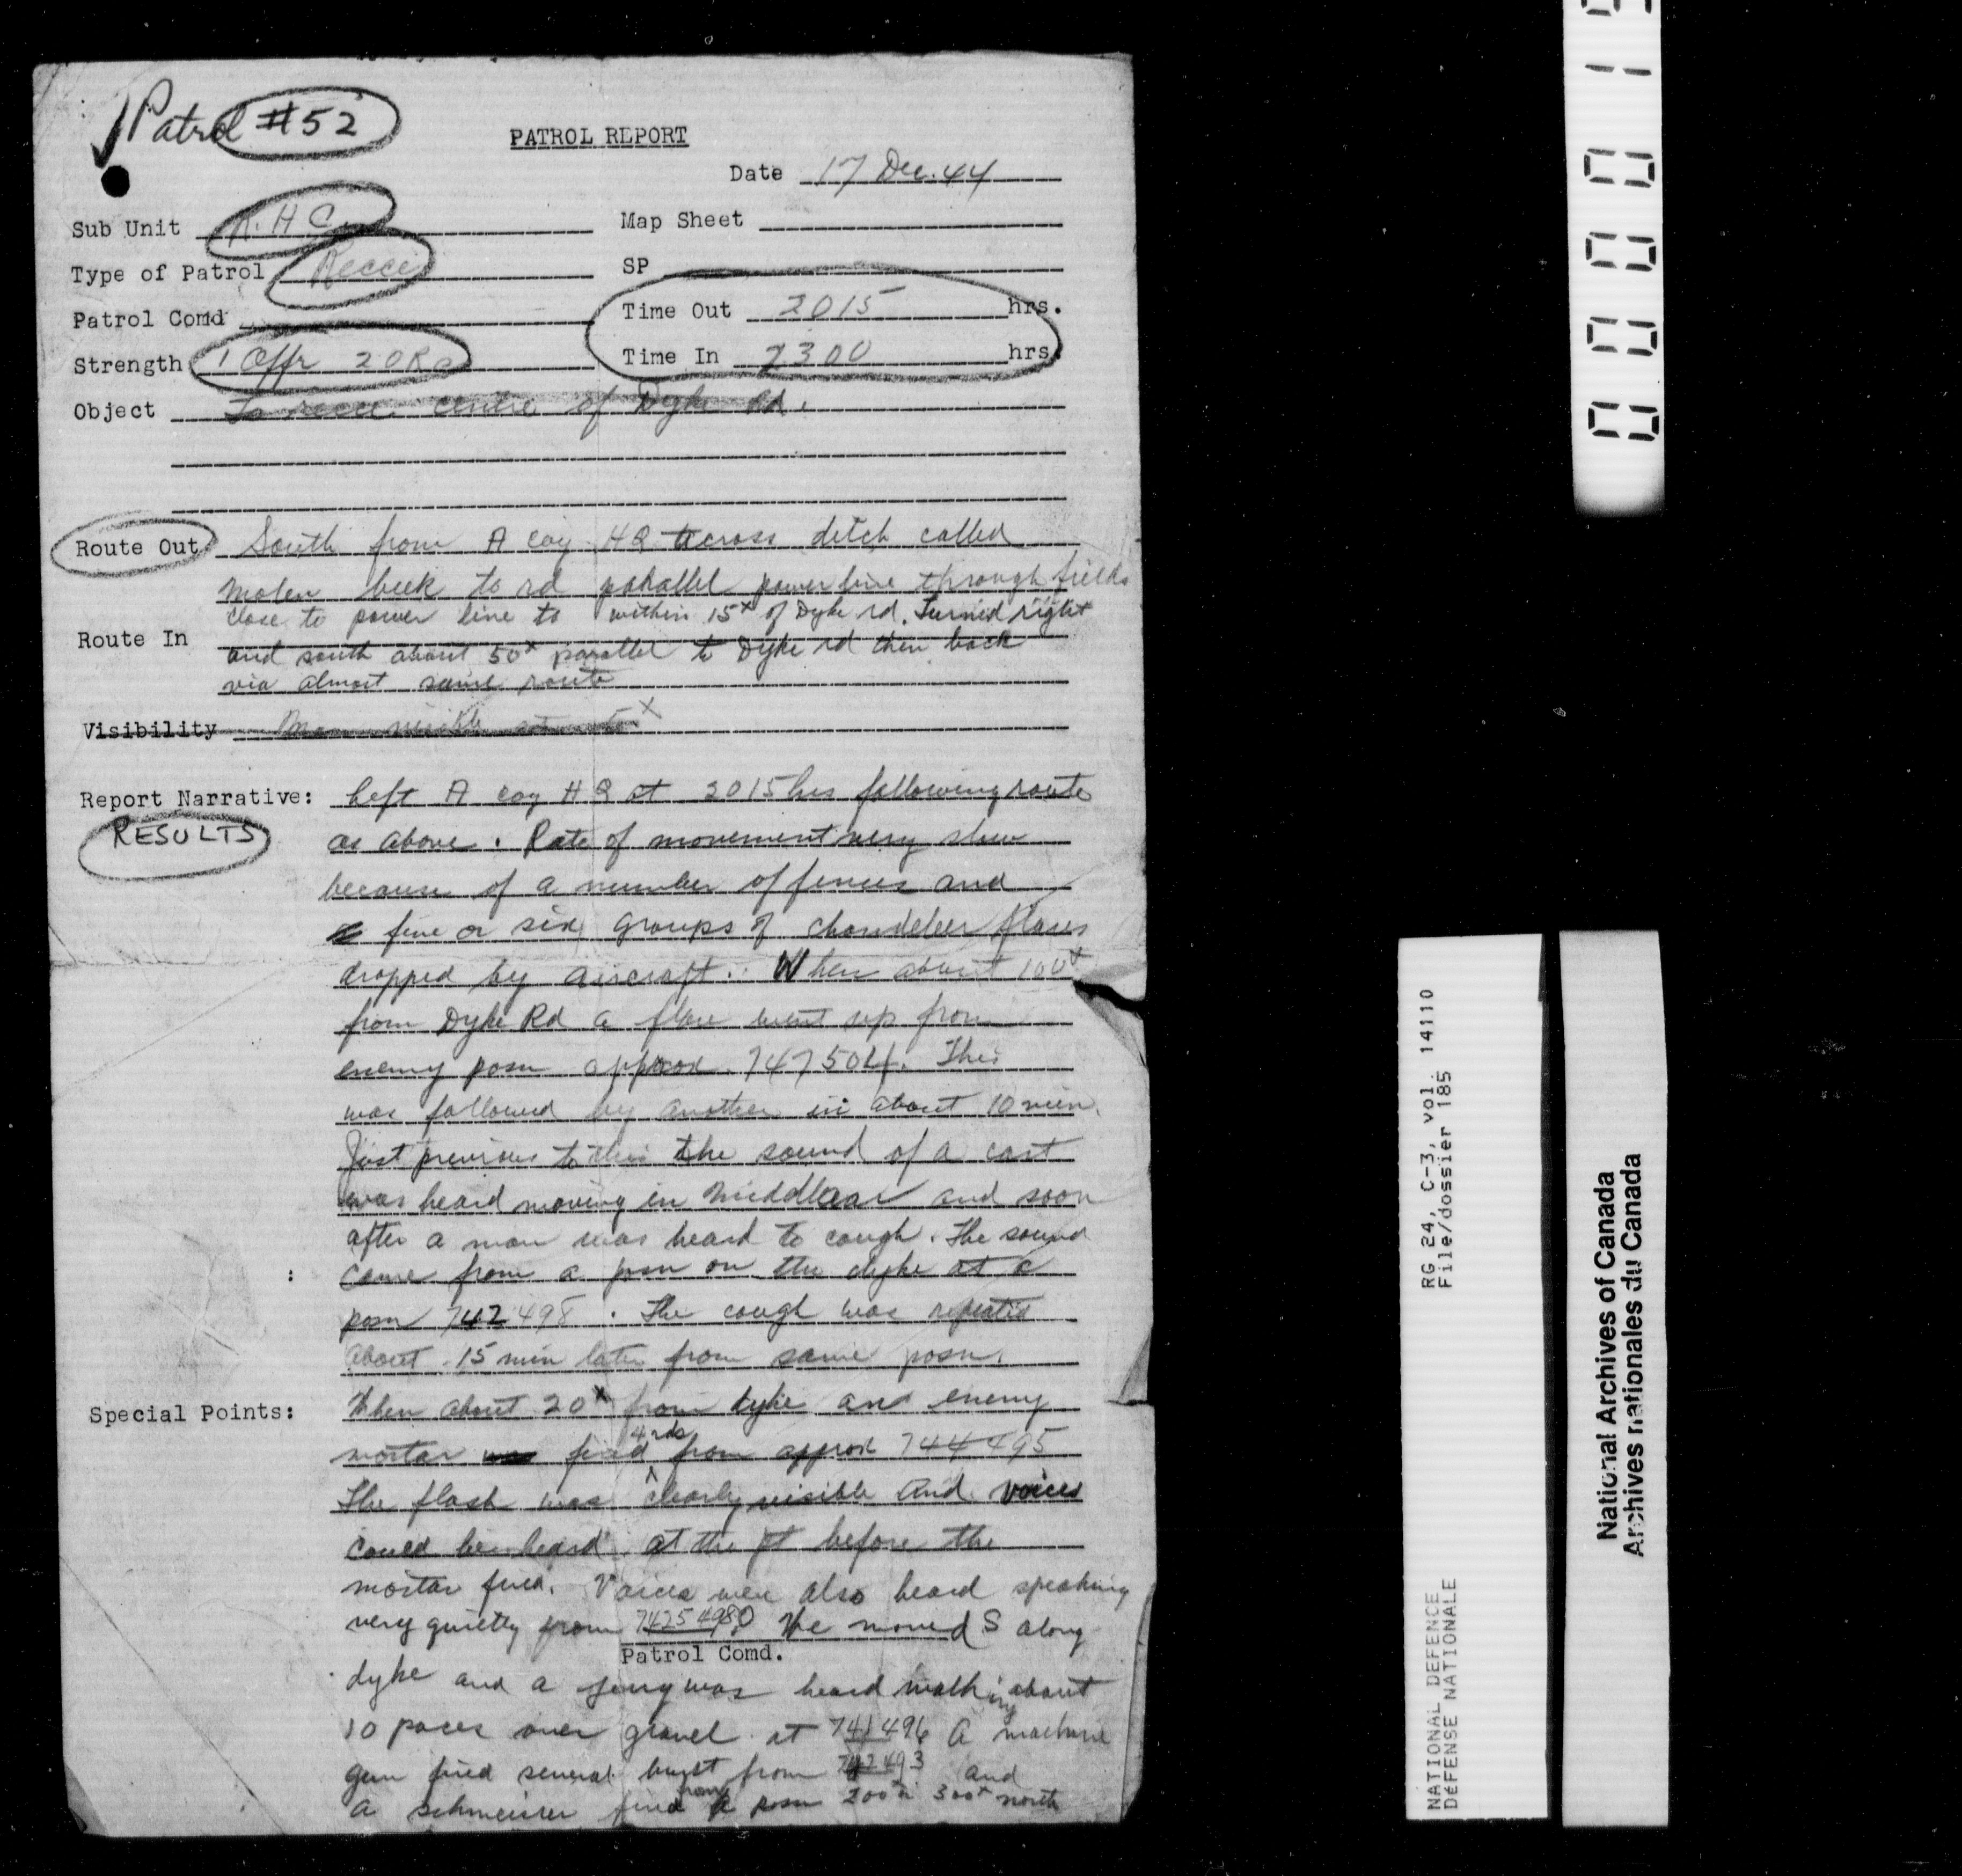 Patrol #52
PATROL REPORT
Date 17 Dec. 44
Sub Unit R.H.C.
Map Sheet
Type of Patrol Recce
SP
Patrol Comd
Time Out 2015 hrs.
Strength 1 Offr 2 ORs
Time In 2300 hrs.
Object To recce centre of Dyke Rd.
Route Out South from A coy HQ across ditch called
Molen beek to rd parallel power line through fields
close to power line to within 15x of Dyke rd. Turned right
Route In
and south about 50x parallel to Dyke rd then back
via almost same route
Visibility Man visible at x
Report Narrative: Left A coy HQ at 2015 hrs following route
RESULTS
as above. Rate of movement very slow
because of a number of fences and
five or six groups of chandelier flares
dropped by aircraft. When about 100x
from Dyke Rd a flare went up from
enemy posn approx 747504. This
was followed by another in about 10 min.
Just previous to this the sound of a cart
was heard moving in Middelaar and soon
after a man was heard to cough. The sound
came from a posn on the dyke at a
posn 742498. The cough was repeated
about 15 min later from same posn.
Special Points: When about 20x from dyke an enemy
mortar fired 4 rds from approx 744495
The flash was clearly visible and voices
could be heard at the pt before the
mortar fired. Voices were also heard speaking
very quietly from 74254980 We moved S along
Patrol Comd.
dyke and a jerry was heard walking about
10 paces over gravel at 741496 A machine
gun fired several burst from 742493 and
a schmeisser fired from posn 200x 300x north
00001
RG 24, C-3, vol. 14110
File/dossier 185
NATIONAL DEFENCE
DÉFENSE NATIONALE
National Archives of Canada
Archives nationales du Canada